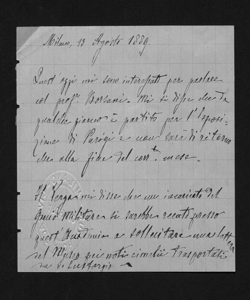 Milano, 13 Agosto 1889.
Quest'oggi mi sono interessato per parlare
col prof. Mi si disse che da
qualche giorno è partito per l'Esposi-
zione di Parigi e non sarà di ritorno
che alla fine del corr. mese.
Il Verga mi disse che un incaricato del
Genio Militare si sarebbe recato presso
quest' a sollecitare una
del Museo pei noti trasportati